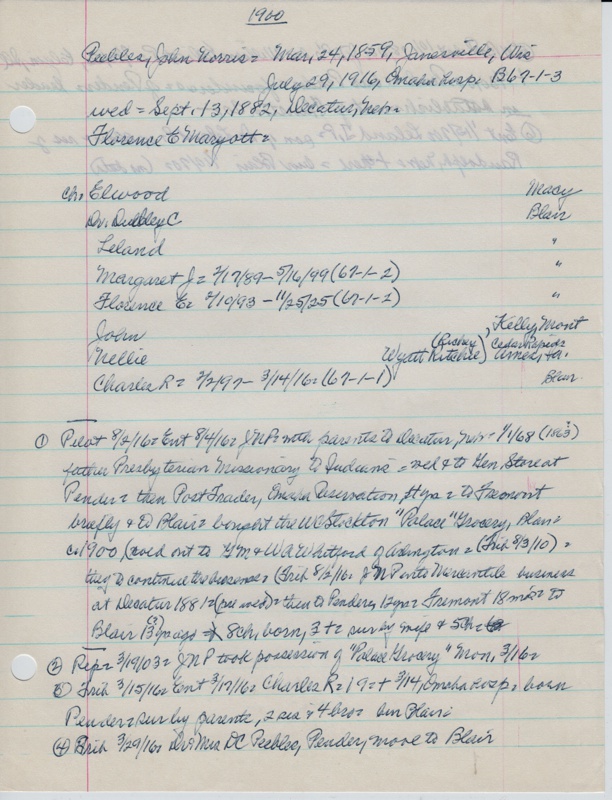 1960
Peebles, John Norris = Mar, 24, 1859, Janesville, Wis
July 29, 1916, Omaha hosp. B67-1-3
wed = Sept. 13, 1882, Decatur, Neb=
Florence E Maryott=
ch. Elwood Macy
Dr. Dudley C Blair
Leland "
Margaret J = 2/17/89 - 5/16/99 (67-1-2) "
Florence E = 2/19/93 - 11/25/25 (67-1-2) "
John Kelly, Mont
Nellie Wyatt Ritchie Cedar Rapids
Charles R = 2/2/97 - 3/14/16 = (67-1-1) Blair
① Pilot 8/2/16 = Ent 8/4/16 = JNP = with parents to Decatur, Neb = 1/1/68 (1863?)
father Presbyterian Missionary to Indians = wed & to Gen. Store at
Pender = then Post Trader, Omaha Reservation, = to Fremont
briefly & to Blair = bought the WC Stockton "Palace" Grocery, Blair =
c. 1900, (sold out to GM & WA Whitford of Arlington = (Trib 8/3/10) =
they to continue the business = (Trib 8/2/16 = JNP into Mercantile business
at Decatur 1881 = (pre wed) = then to Pender, 12 yrs = Fremont 18 mos = to
Blair yrs ago 8 ch. born, 3 + = sur by wife & 5 ch =
② Rep = 3/19/03 = JNP took possession of "Palace Grocery" Mon, 3/16 =
③ Trib 3/15/16 = Ent 3/17/16 = Charles R = 19 = + 3/14, Omaha hosp = born
Pender = sur by parents, 2 sis & 4 bro = bur Blair =
④ Trib 3/29/16 = Dr & Mrs DC Peebles, Pender, move to Blair